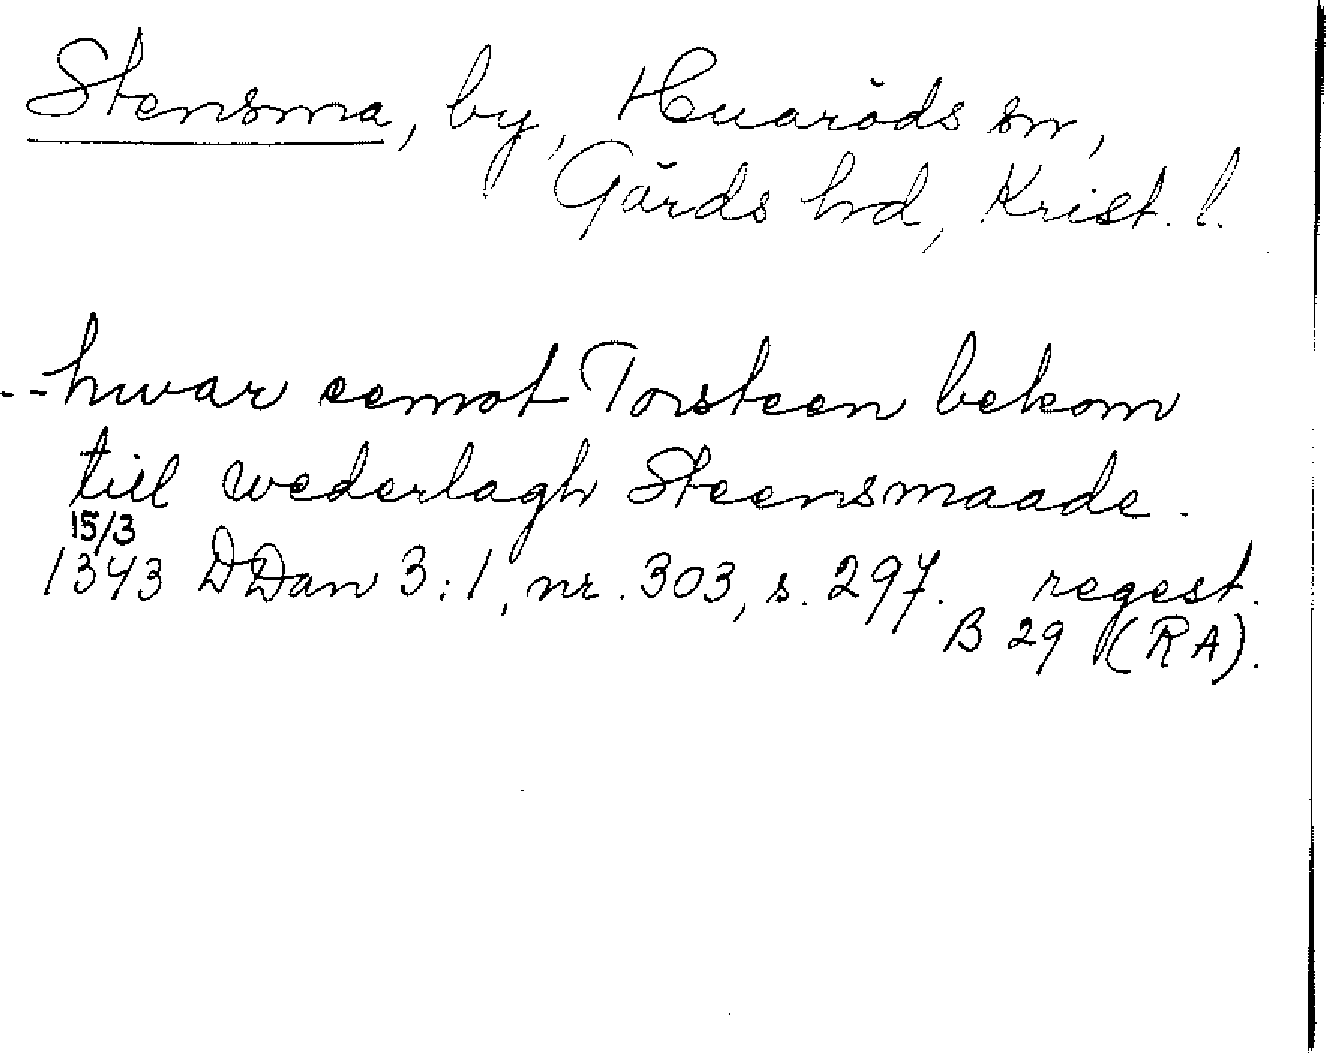 Stensma, by, Huaröds sn,
Gärds hrd, Krist. l.
--hwar eemot Torsteen bekom
till wederlagh Steensmaade.
15/3
1343 DDan 3:1, nr. 303, s. 297. regest.
B 29 (RA).